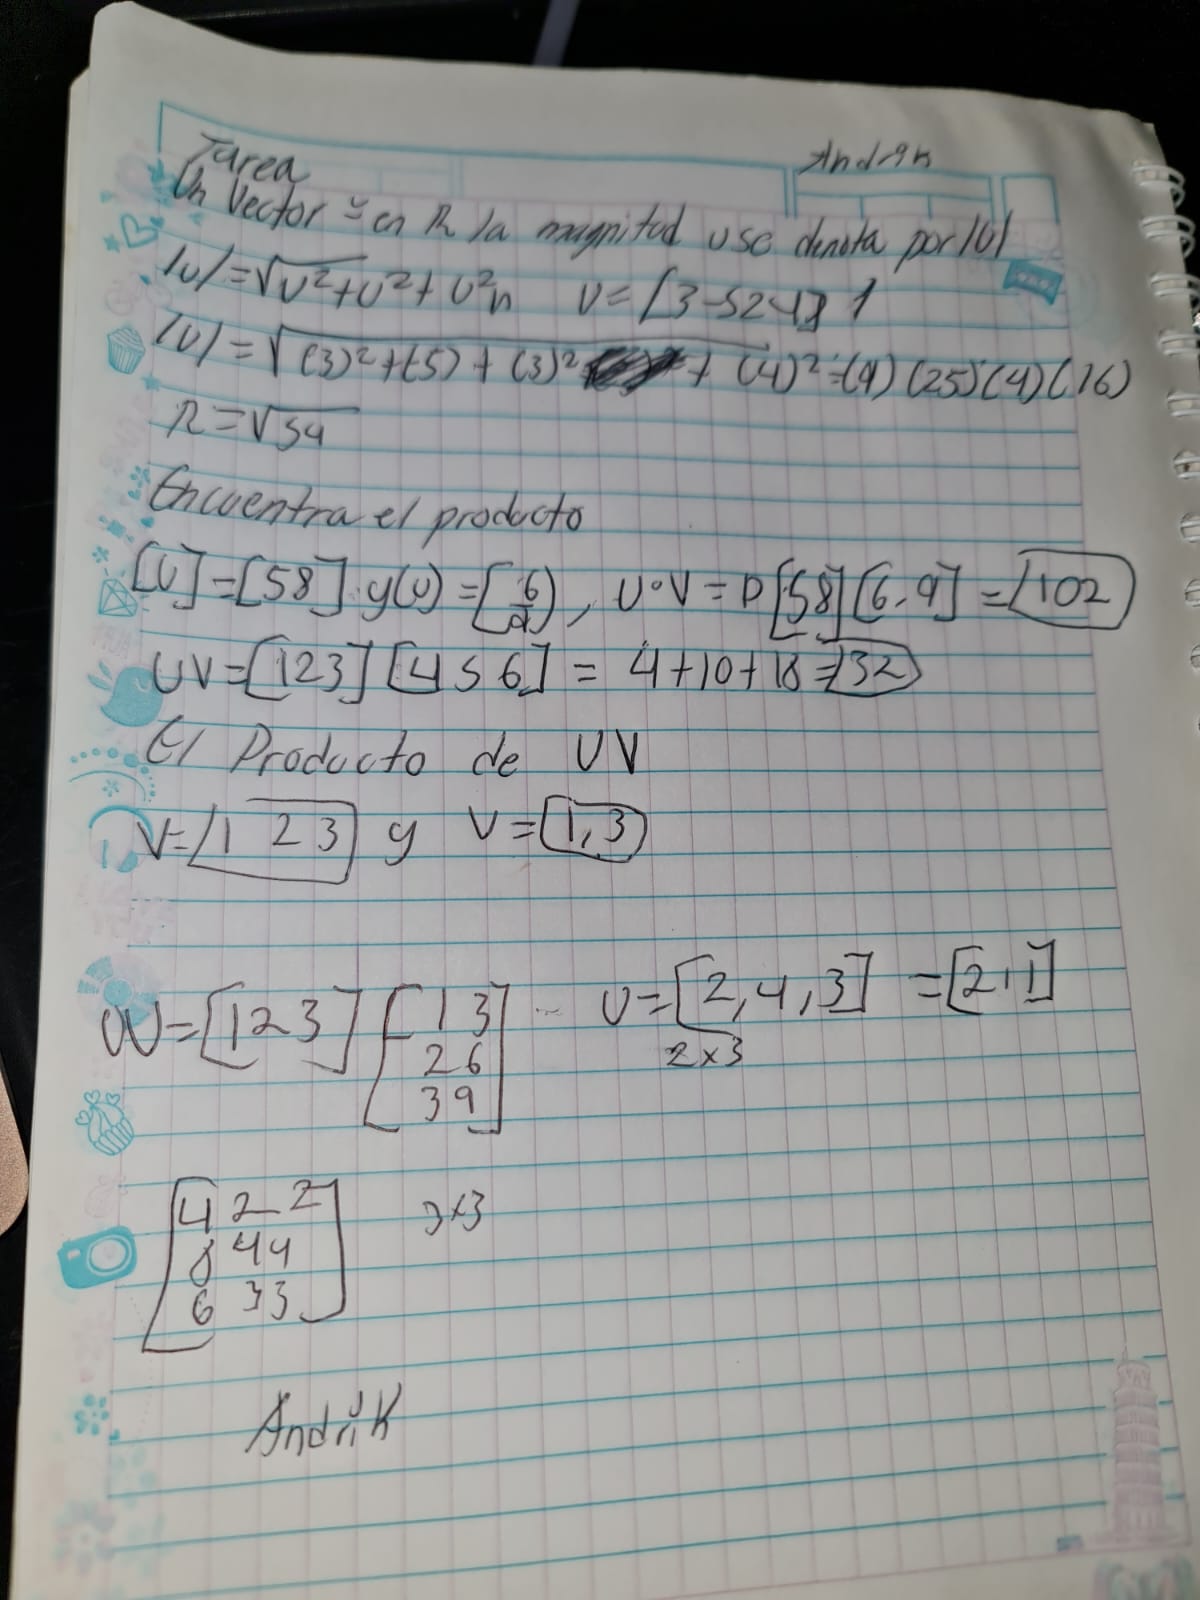 Andrik
Tarea
Un Vector v en R la magnitud v se denota por |U|
|U|=√U²+U²+U²n U=[3-524]
|U|=√(3)²+(5)+(3)² + (4)²=(9)(25)(4)(16)
R=√54
Encuentra el producto
[U]=[58] y(U)=[6/9), U•V=D[58][6,9]=102
UV=[123][456] = 4+10+18=32
El Producto de UV
V=[1 2 3] y V=[1,3]
UV=[123][13 U=[2,4,3] =[2,1]
26 2x3
39]
[4 2 2 3x3
8 44
6 33]
Andrik